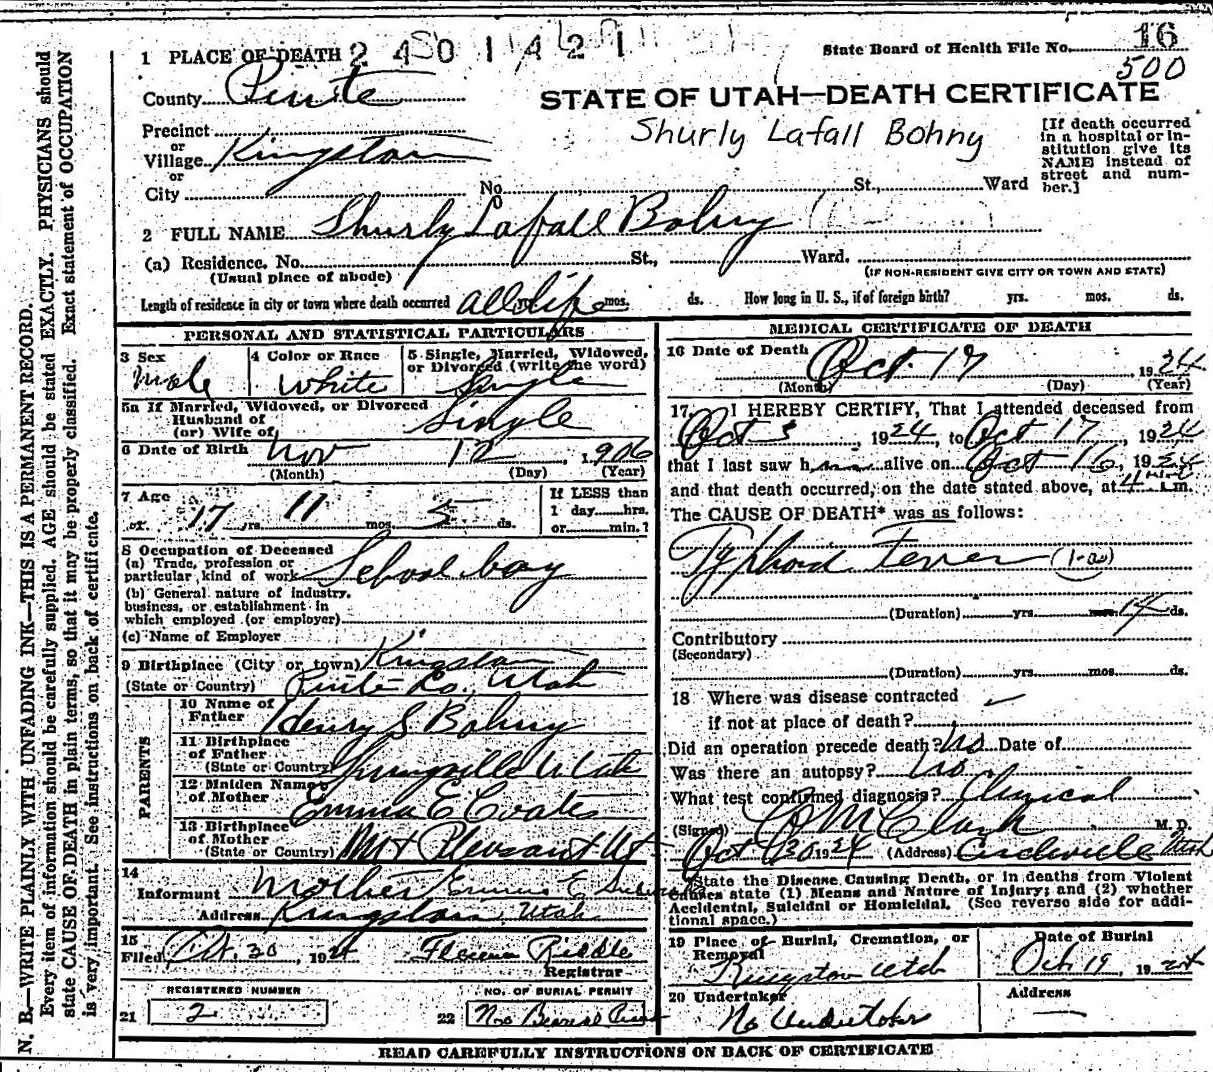 1 PLACE OF DEATH 2 4 5 0 1 4 2 1
State Board of Health File No. 16
500
County Piute
STATE OF UTAH—DEATH CERTIFICATE
Shurly Lafall Bohny
[If death occurred in a hospital or institution give its NAME instead of street and number.]
Precinct
or
Village Kingston
or
City No. St., Ward
2 FULL NAME Shurly Lafall Bohny
(a) Residence. No. St., Ward.
(Usual place of abode) (IF NON-RESIDENT GIVE CITY OR TOWN AND STATE)
Length of residence in city or town where death occurred all life yrs. mos. ds. How long in U. S., if of foreign birth? yrs. mos. ds.
PERSONAL AND STATISTICAL PARTICULARS
3 Sex Male
4 Color or Race White
5 Single, Married, Widowed, or Divorced (write the word) Single
5a If Married, Widowed, or Divorced
Husband of
(or) Wife of Single
6 Date of Birth Nov 12, 1906
(Month) (Day) (Year)
7 Age
or 17 yrs. 11 mos. 5 ds.
If LESS than
1 day hrs.
or min.?
8 Occupation of Deceased
(a) Trade, profession or
particular kind of work School boy
(b) General nature of industry,
business, or establishment in
which employed (or employer)
(c) Name of Employer
9 Birthplace (City or town) Kingston
(State or Country) Piute Co., Utah
PARENTS
10 Name of
Father Henry S Bohny
11 Birthplace
of Father
(State or Country) Springville Utah
12 Maiden Name
of Mother Emma E Coates
13 Birthplace
of Mother
(State or Country) Mt Pleasant Ut
14
Informant Mother Emma E
Address Kingston, Utah
15
Filed Oct. 30, 1924 Riddle
Registrar
REGISTERED NUMBER
21 2
NO. OF BURIAL PERMIT
22 No Burial
MEDICAL CERTIFICATE OF DEATH
16 Date of Death Oct. 17 1924
(Month) (Day) (Year)
17. I HEREBY CERTIFY, That I attended deceased from
Oct 3, 1924, to Oct 17, 1924
that I last saw him alive on Oct 16, 1924
and that death occurred, on the date stated above, at 4 m.
The CAUSE OF DEATH* was as follows:
Typhoid Fever (1-a)
(Duration) yrs. mos. 14 ds.
Contributory
(Secondary)
(Duration) yrs. mos. ds.
18 Where was disease contracted
if not at place of death?
Did an operation precede death? No Date of
Was there an autopsy? No
What test confirmed diagnosis? Clinical
(Signed) M Clark M. D.
Oct 30 1924 (Address) Circleville Utah
*State the Disease Causing Death, or in deaths from Violent
Causes state (1) Means and Nature of Injury; and (2) whether
Accidental, Suicidal or Homicidal. (See reverse side for addi-
tional space.)
19 Place of Burial, Cremation, or
Removal
Kingston Utah
Date of Burial
Oct 19, 1924
20 Undertaker
No Undertaker
Address
—
READ CAREFULLY INSTRUCTIONS ON BACK OF CERTIFICATE
N. B.—WRITE PLAINLY WITH UNFADING INK—THIS IS A PERMANENT RECORD.
Every item of information should be carefully supplied. AGE should be stated EXACTLY. PHYSICIANS should
state CAUSE OF DEATH in plain terms, so that it may be properly classified. Exact statement of OCCUPATION
is very important. See instructions on back of certificate.